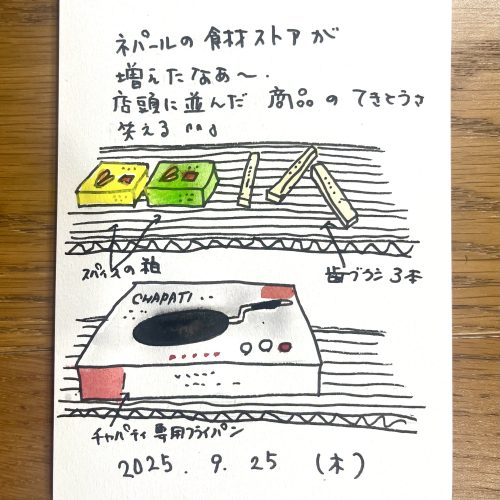 ネパールの食材ストアが
増えたなあ〜.
店頭に並んだ 商品のてきとうさ
笑える
スパイスの箱
歯ブラシ 3本
CHAPATI
チャパティ専用フライパン
2025.9.25 (木)